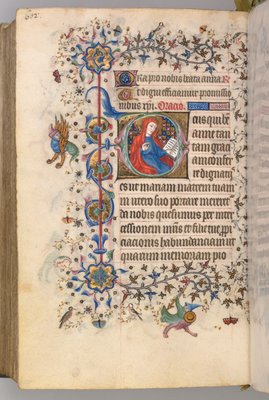 602.
Ora pro nobis beata anna R
Ut digni efficiamur promissio
nibus xpi. Oracio.
eus qui be
anne tan
tam graci
am confer
re dignatus
es ut mariam matrem tuam
in utero suo portare merere
da nobis quesumus per inter
cessionem
habundanciam ut
quarum memoriam pio